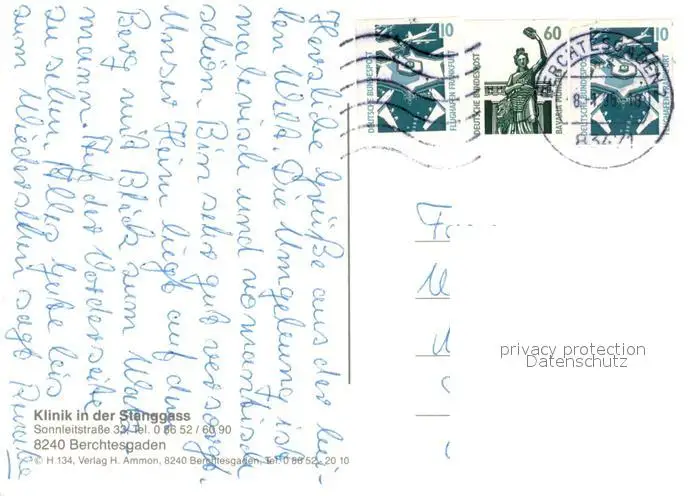 Herzliche Grüße aus der hei-
len Welt. Die Umgebung ist
malerisch und romantisch
schön. Bin sehr gut versorgt.
Unser Heim liegt auf dem
Berg mit Blick zum Watz-
mann. Auf der Vorderseite
zu sehen. Alles Gute bis
zum Wiedersehen sagt
Klinik in der Stanggass
Sonnleitstraße 33, Tel. 0 86 52 / 60 90
8240 Berchtesgaden
© H 134, Verlag H. Ammon, 8240 Berchtesgaden, Tel. 0 86 52 - 20 10
10
DEUTSCHE BUNDESPOST
FLUGHAFEN FRANKFURT
60
DEUTSCHE BUNDESPOST
BAVARIA MÜNCHEN
10
DEUTSCHE BUNDESPOST
FLUGHAFEN FRANKFURT
BERCHTESGADEN
privacy protection
Datenschutz